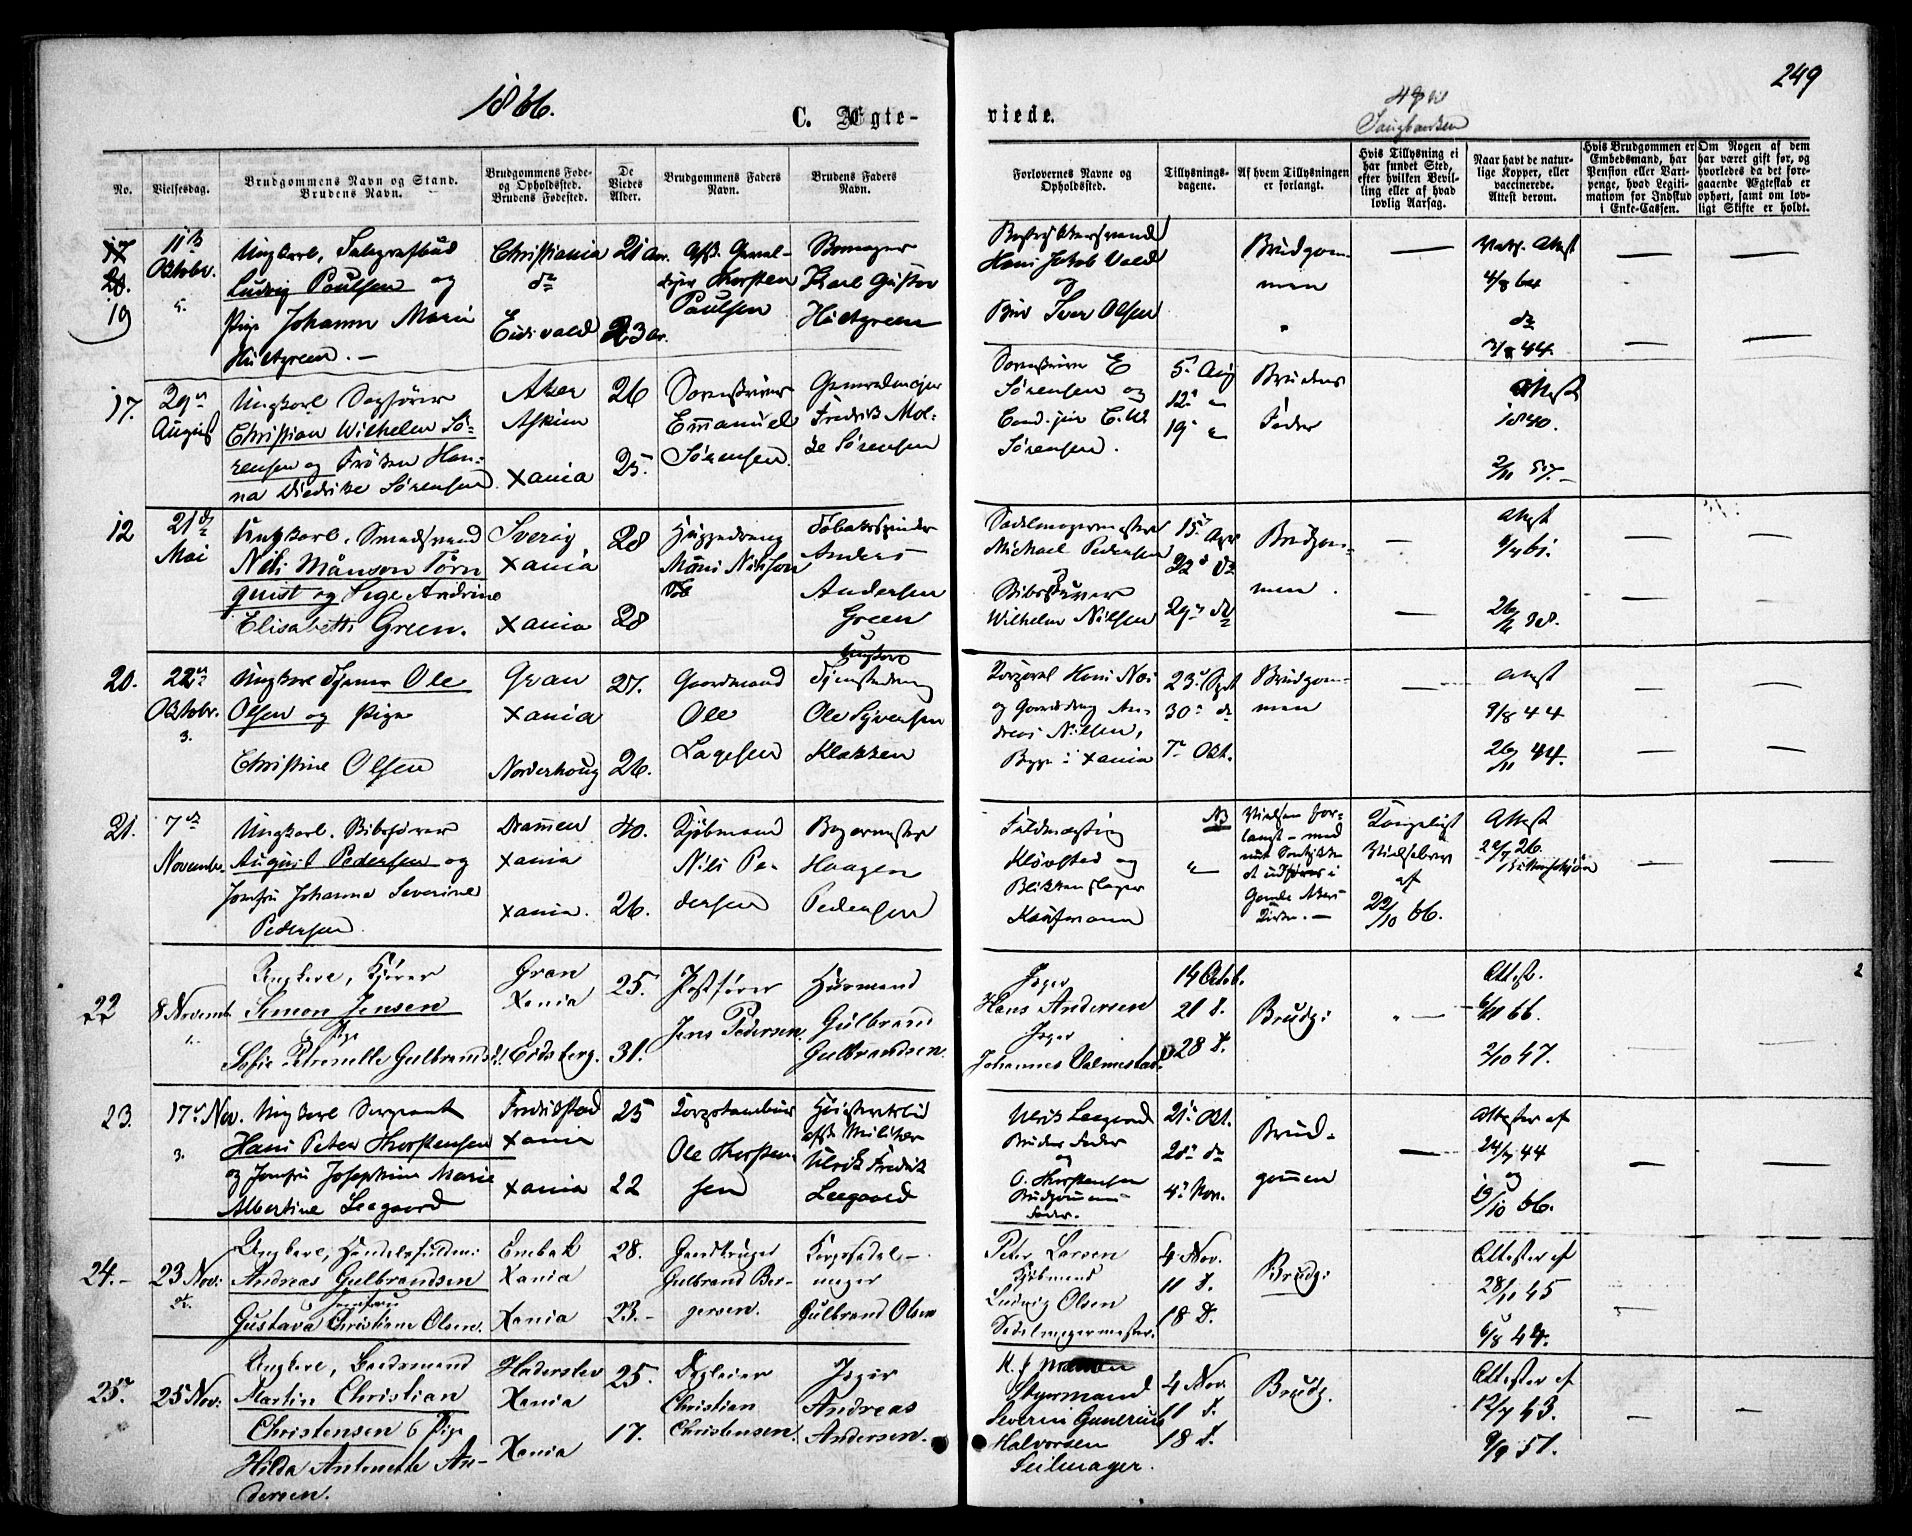 1866.
C. Ægte-
viede.
249
No.
Vielsesdag.
Brudgommens Navn og Stand.
Brudens Navn.
Brudgommens Føde-
og Opholdssted.
Brudens Fødested.
De
Viedes
Alder.
Brudgommens Faders
Navn.
Brudens Faders
Navn.
Forlovernes Navne og
Opholdssted.
Tillysnings-
dagene.
Af hvem Tillysningen
er forlangt.
Hvis Tillysning ei
har fundet Sted,
efter hvilken Bevil-
ling eller af hvad
lovlig Aarsag.
Naar havt de natur-
lige Kopper, eller
vaccinerede.
Attest derom.
Hvis Brudgommen er
Embedsmand, har
Pension eller Vart-
penge, hvad Legiti-
mation for Indskud
i Enke-Cassen.
Om Nogen af dem
har været gift før, og
hvorledes da det fore-
gaaende Ægteskab er
ophørt, samt om lov-
ligt Skifte er holdt.
19
Oktobr.
Ungkarl, Telegrafbud
Ludvig Paulsen og
Pige Johanne Marie
Hultgreen.
Christiania
Eidsvold
21 Aar.
23 Ar.
Thorsten
Paulsen
Karl Gustav
Hultgreen
Hans Jakob Wold
og
Iver Olsen
Brudgom-
men
4/8 64
do
44.
17.
29de
August
Ungkarl Sagfører
Christian Wilhelm Sö-
rensen og Frøken Han-
na Diedrike Sørensen
Aker
Askim
Xania
26
25.
Sorenskriver
Emmanuel
Sørensen
Generalmajor
Fredrik Mol-
ke Sørensen
Sorenskriver E
Sørensen og
Cand. jur. C. W.
Sørensen.
5te Aug
12te "
19 "
Brudens
Fader
Attest
1840.
2/11 57.
12
21de
Mai
Ungkarl, Smedsvend
Nils Månson Törn
quist og Pige Andrine
Elisabeth Green.
Sverig
Xania
Xania
28
28
Måns Nilsson
Anders
Andersen
Green
Sadelmagermester
Michael Pedersen
Wilhelm Nilsen
15de Apr
22d do
29de do
Brudgom-
men.
Attest
20.
22de
Oktobr.
3.
Ungkarl Tjener Ole
Olsen og Pige
Christine Olsen
Gran
Xania
Norderhoug
27.
26.
Gaardmand
Ole
Lagesen
Ungkarl
Ole Syversen
Klakken
Korporal Hans Nes
og Gaardsdreng An-
dreas Nilsen,
Begge i Xania
23de Sept
30te do
7de Okt.
Brudgom-
men
Attest
9/8 44
26/11 44.
21.
7de
November
Ungkarl. Bibsfører
August Pedersen og
Jomfru Johanne Severine
Pedersen
Drammen
Xania
Xania.
40.
26.
Kjøbmand
Nils Pe-
dersen
Bagermester
Haagen
Pedersen
Fuldmægtig
Kløvsted og
Blikkenslager
Kaufmann
NB
"
Vielsen for-
langt med
at udføres i
Gamle Akers
Kirke.
Kongeligt
Vielsesbrev
af
22/10 66.
Attest
22
8 Novemb.
Ungkarl, Kjører
Simon Jensen
& Pige
Sofie Petrenelle Gulbrandsd.
Gran
Xania
Eidsberg.
25.
31.
Postfører
Jens Pedersen
Huusmand
Gulbrand
Gulbrandsen.
Jæger
Hans Andersen
Jæger
Johannes Valmestad.
14 Octob.
21 d.
28 d.
Brudg:
Attest.
6/11 66.
2/10 47.
23.
17de Nov.
3.
Ungkarl Sergeant
Hans Peter Thorstensen
og Jomfru Josephine Marie
Albertine Leegaard
Fredrikstad
Xania
Xania
25
22
Korpstambur
Ole Thorsten-
sen
afsk Militær
Ulrik Fredrik
Leegaard
Ulrik Leegaard
Brudens Fader
og
O. Thorstensen
Brudgommens
Fader.
21de Okt.
28de do
4de Nov.
Brud-
gommen
Attester af
24/7 44
og
19/10 66.
24.
23 Nov:
Ungkarl, Handelsfuldm:
Andreas Gulbrandsen
Jomfru
Gustava Christiane Olsen.
Enebak
Xania
Xania
28.
23.
Gulbrand Ber-
gersen.
Korpssadel-
mager
Gulbrand Olsen
Peter Larsen
Kjøbmand
Ludvig Olsen
Sadelmagermester.
4 Nov.
11 d.
18 d.
Brudg:
Attester af
28/11 45
6/8 44.
25.
25 Nov:
Ungkarl, Bundtmand
Martin Christian
Christensen & Pige
Hilda Antonette An-
dersen.
Haderslev
Xania
Xania
25.
17.
Daglejer
Christian
Christensen.
Jæger
Andreas
Andersen.
Styrmand
Severin Gunerius
Halvorsen
Seilmager.
4 Nov.
11 d.
18 d.
Brudg.
Attester af
12/7 43.
9/9 51.